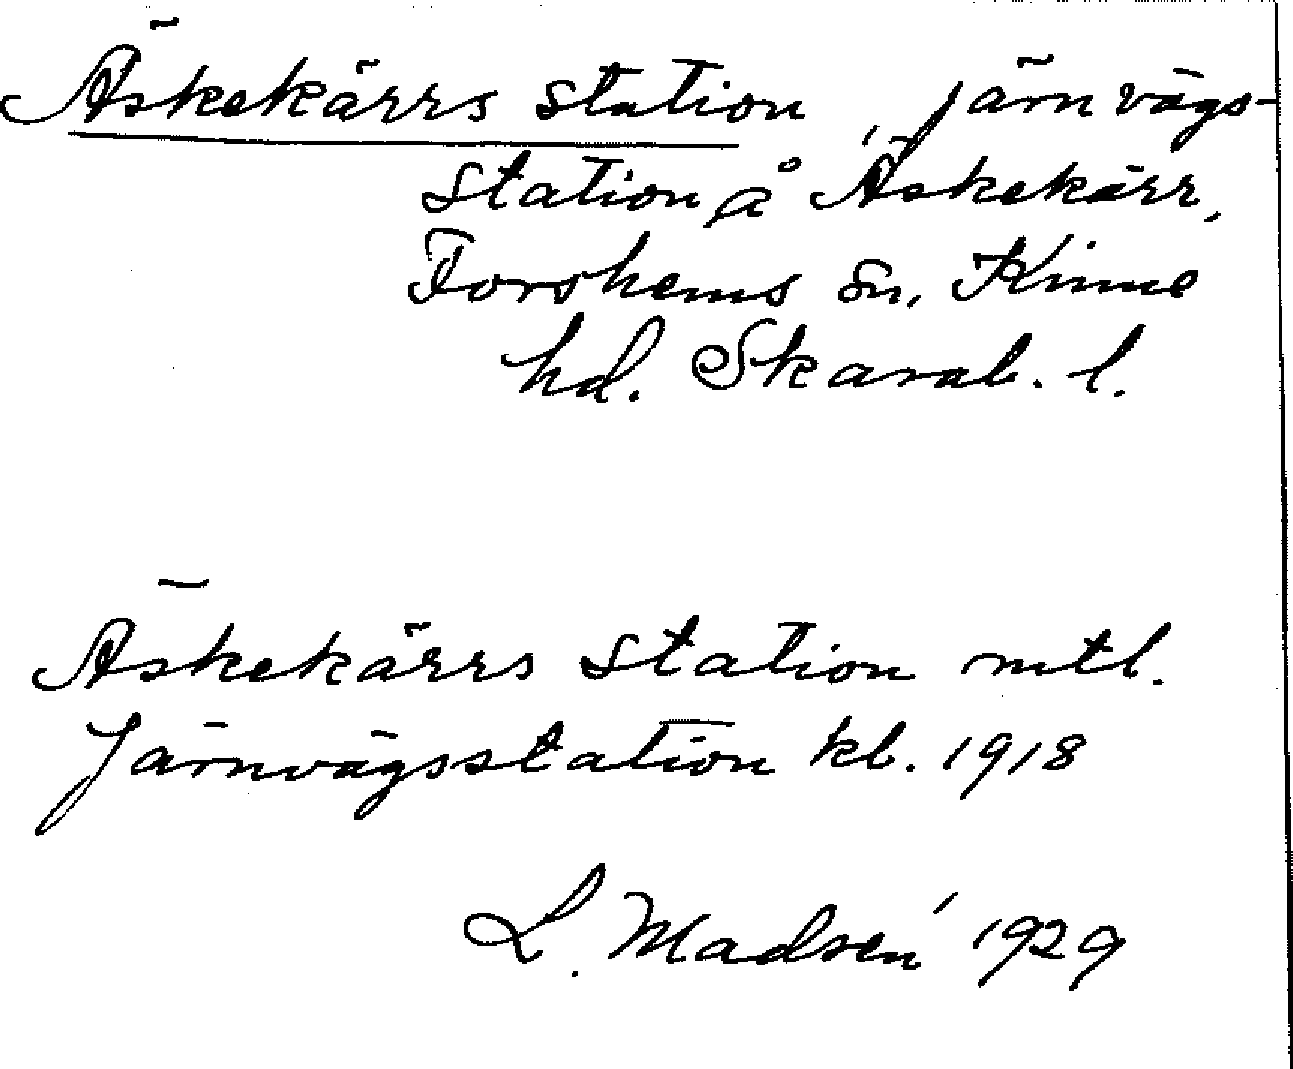 Äskekärrs station, järnvägs-
station å Äskekärr,
Forshems sn, Kinne
hd. Skarab. l.
Äskekärrs station mtl.
Järnvägsstation kb. 1918
L. Madsén 1929